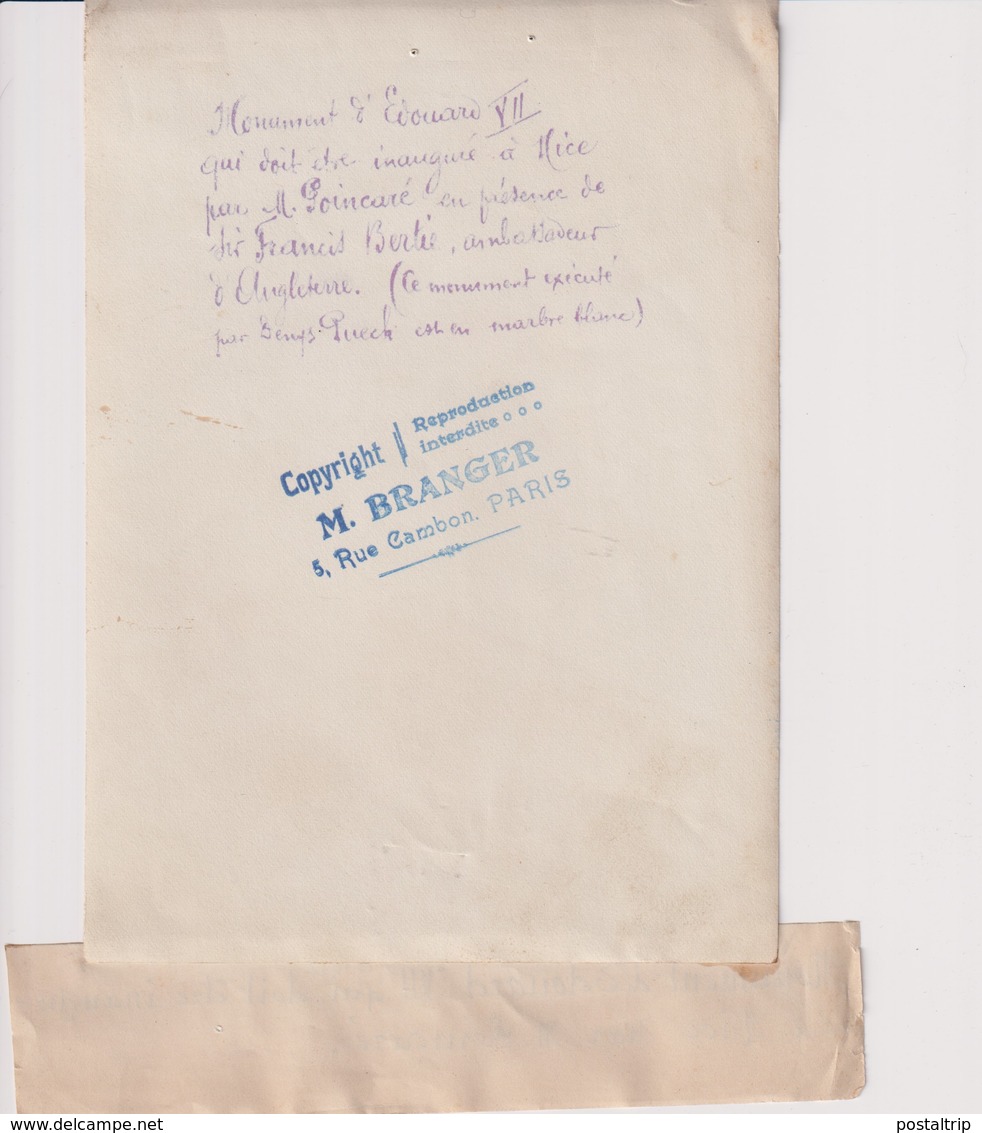 Monument d'Edouard VII
qui doit être inauguré à Nice
par M. Poincaré en présence de
Sir Francis Bertie, ambassadeur
d'Angleterre. (Ce monument exécuté
par Denys Puech est en marbre blanc)
Copyright
Reproduction
interdite
M. BRANGER
5, Rue Cambon. PARIS
delcampe.net
postaltrip